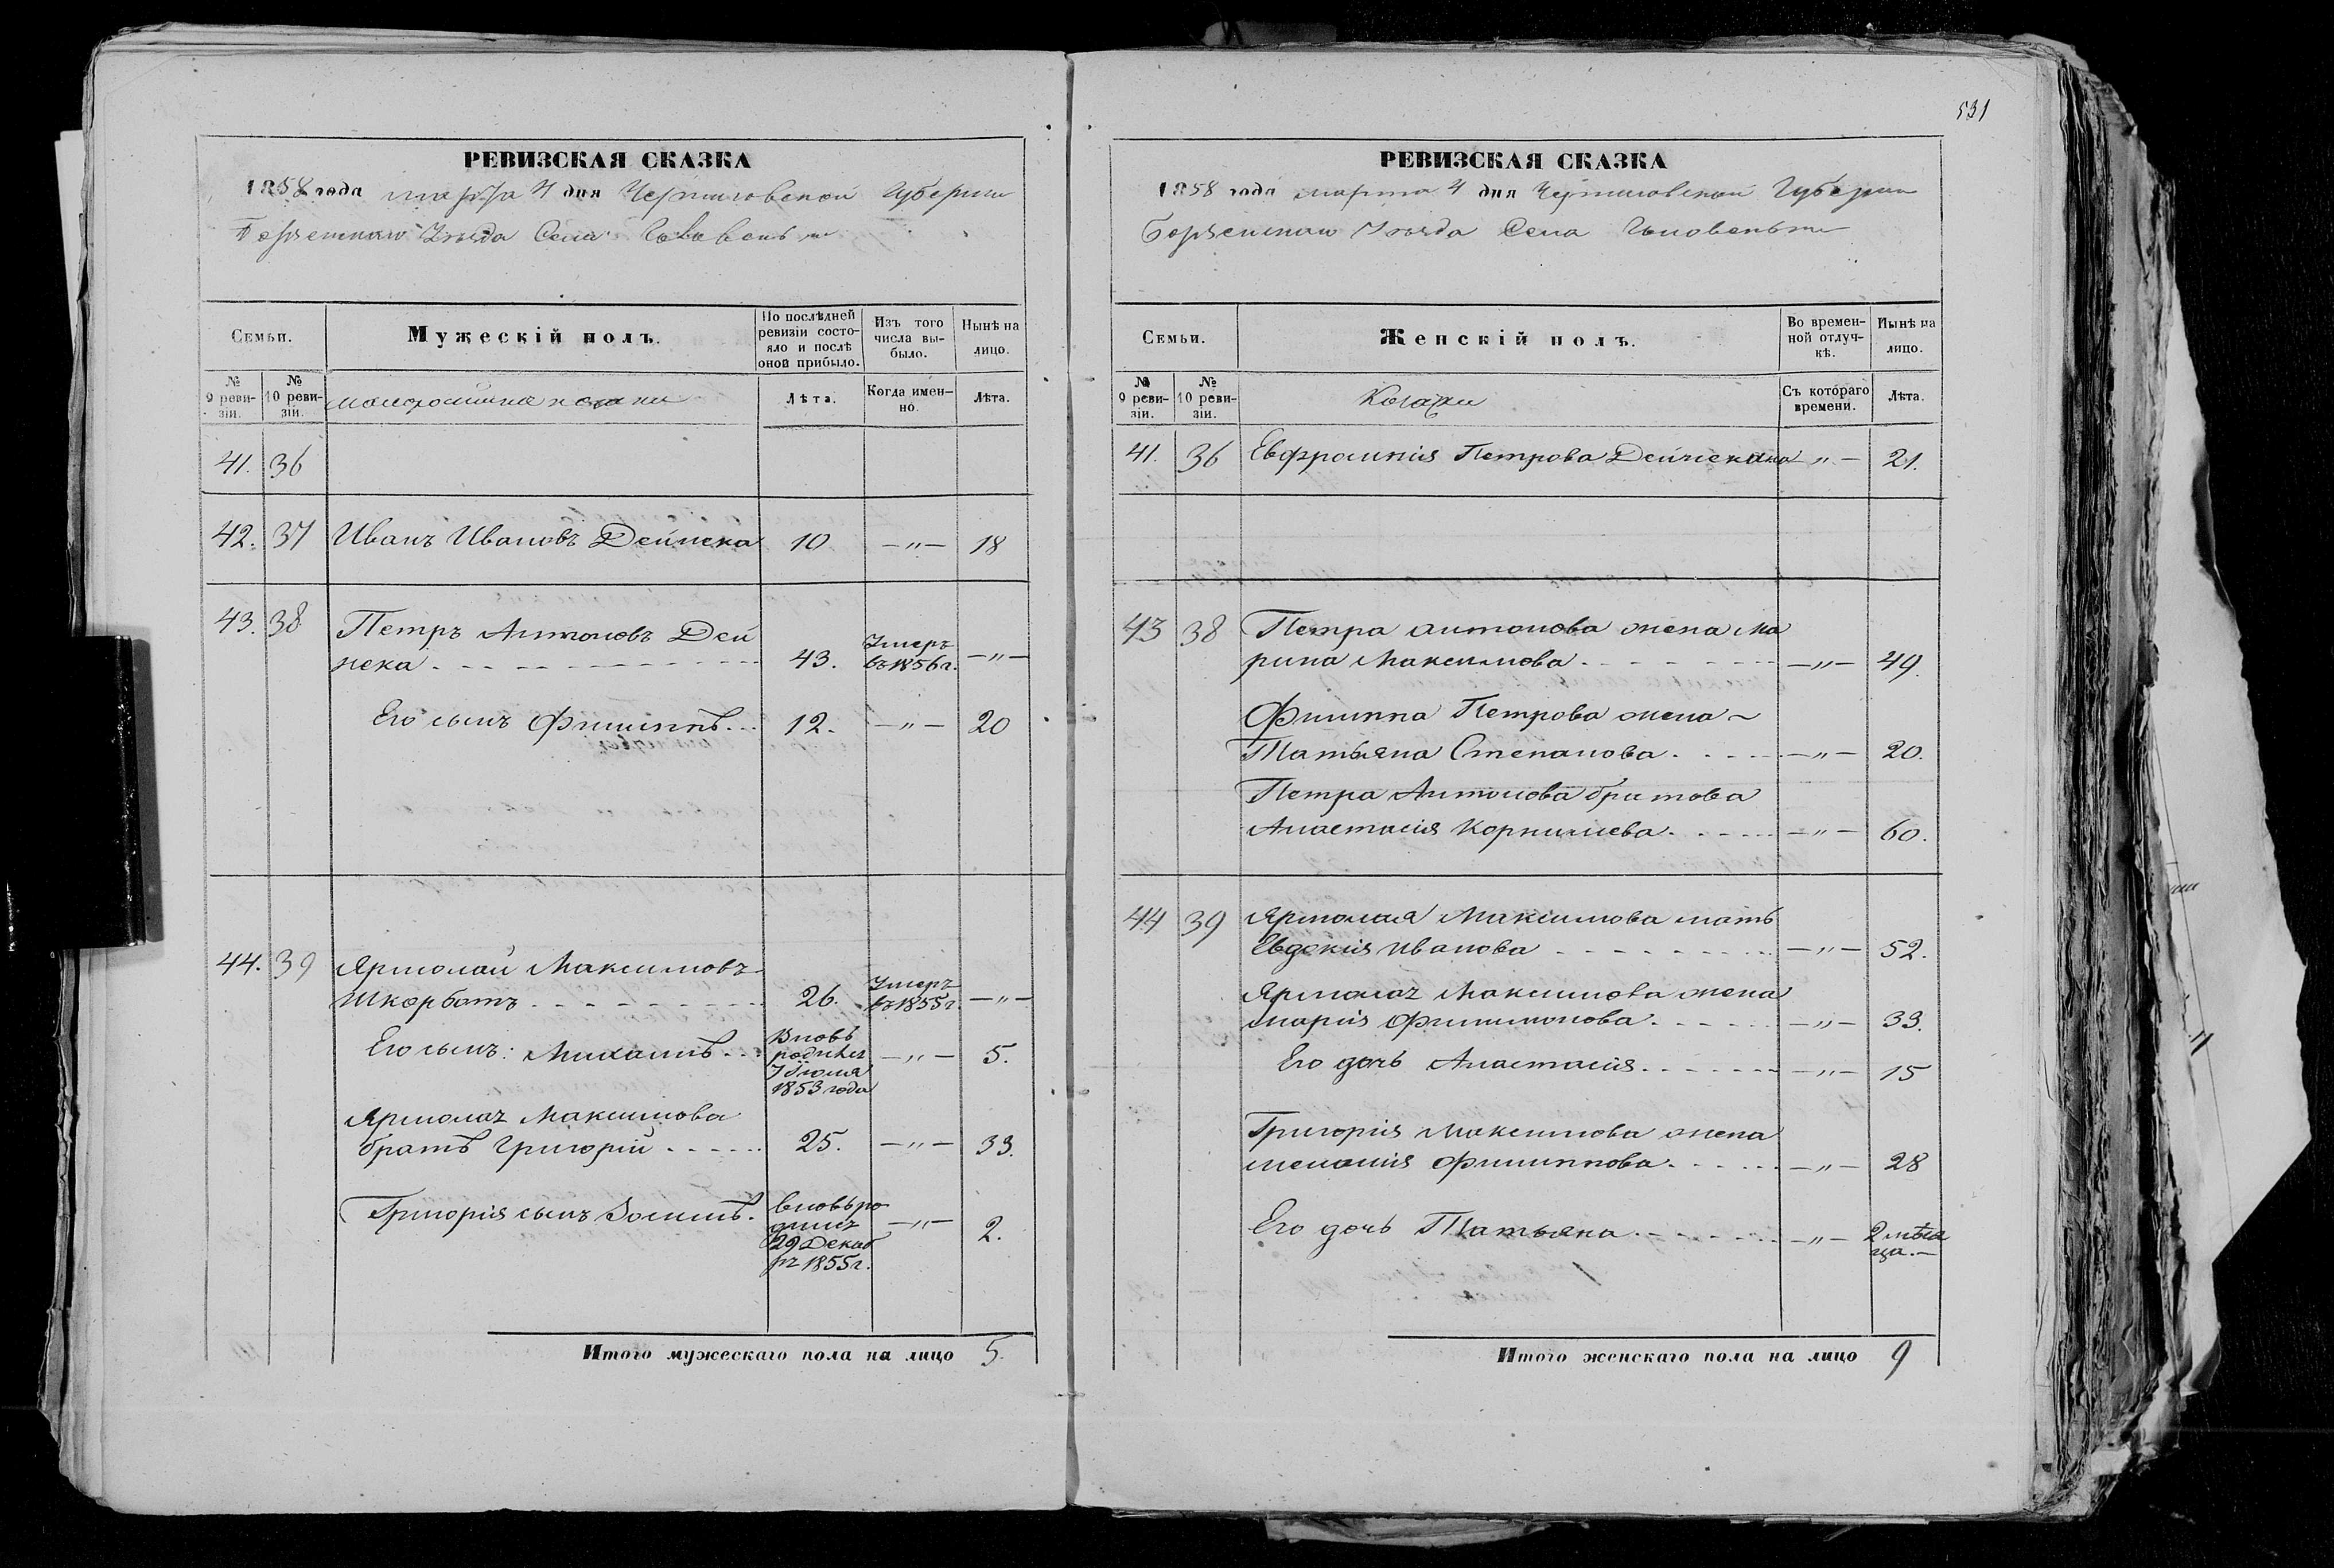 531
РЕВИЗСКАЯ СКАЗКА
1858 года марта 4 дня Черниговской Губернии
Борзенскаго Уѣзда Села
Семьи.
Мужескій полъ.
По послѣдней ревизіи состояло и послѣ оной прибыло.
Изъ того числа выбыло.
Нынѣ на лицо.
№ 9 ревизіи.
№ 10 ревизіи.
малороссійскіе козаки
Лѣта.
Когда именно.
Лѣта.
41. 36
42. 37 Иванъ Ивановъ Дейнека 10 —"— 18
43. 38 Петръ Антоновъ Дей
нека 43. Умеръ въ 1856 г. —"—
Его сынъ Филиппъ 12. —"— 20
44. 39 Ярмолай Максимовъ
Шкорботъ 26. Умеръ въ 1855 г. —"—
Его сынъ: Михаилъ Вновь родился 7 Іюля 1853 года —"— 5.
Ярмолая Максимова
братъ Григорій 25. —"— 33.
Григорія сынъ Зосимъ вновь родился 29 Декабря 1855 г. —"— 2.
Итого мужескаго пола на лицо 5.
РЕВИЗСКАЯ СКАЗКА
1858 года марта 4 дня Черниговской Губерніи
Борзенскаго Уѣзда Села
Семьи.
Женскій полъ.
Во временной отлучкѣ.
Нынѣ на лицо.
№ 9 ревизіи.
№ 10 ревизіи.
Козачки
Съ котораго времени.
Лѣта.
41. 36 Евфросинія Петрова Дейнекина —"— 21.
43 38 Петра Антонова жена Ма
рина Максимова —"— 49.
Филиппа Петрова жена
Татьяна Степанова —"— 20.
Петра Антонова братова
Анастасія Корнилиева —"— 60.
44 39 Ярмолая Максимова мать
Евдокія Иванова —"— 52.
Ярмолая Максимова жена
Марія Филимонова —"— 33.
Его дочь Анастасія —"— 15
Григорія Максимова жена
Меланія Филиппова —"— 28
Его дочь Татьяна —"— 2 мѣся
ца.—
Итого женскаго пола на лицо 9